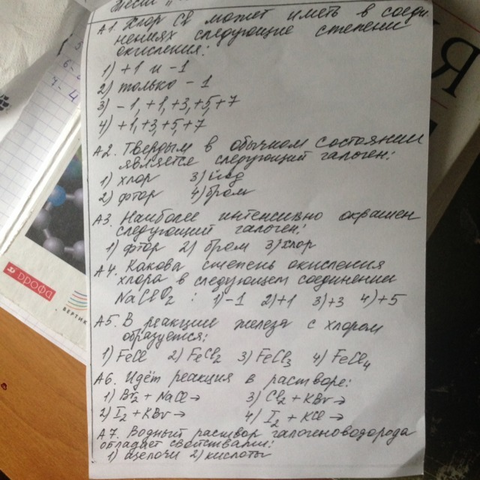 А1. Хлор Cl может иметь в соеди
нениях следующие степени
окисления:
1) +1 и -1
2) только -1
3) -1, +1, +3, +5, +7
4) +1, +3, +5, +7
А2. Твердым в обычном состоянии
является следующий галоген:
1) хлор 3) иод
2) фтор 4) бром
А3. Наиболее интенсивно окрашен
следующий галоген:
1) фтор 2) бром 3) хлор
А4. Какова степень окисления
хлора в следующем соединении
NaClO2 : 1) -1 2) +1 3) +3 4) +5
А5. В реакции железа с хлором
образуется:
1) FeCl 2) FeCl2 3) FeCl3 4) FeCl4
А6. Идёт реакция в растворе:
1) Br2 + NaCl → 3) Cl2 + KBr →
2) I2 + KBr → 4) I2 + KCl →
А7. Водный раствор галогеноводорода
обладает свойствами:
1) щелочи 2) кислоты